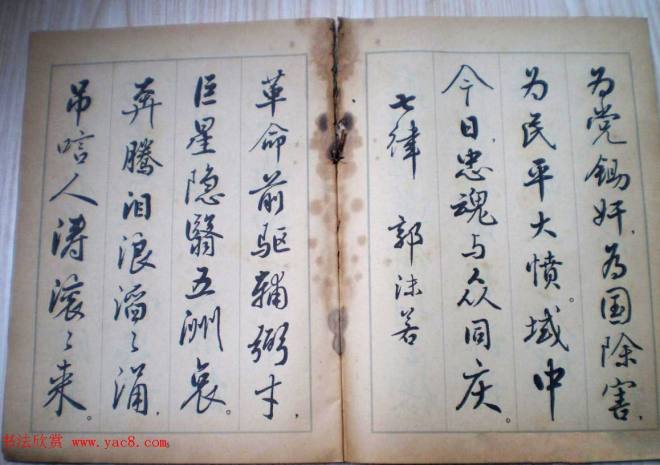 为党锄奸,为国除害,
为民平大愤。域中
今日,忠魂与众同庆。
七律 郭沫若
革命前驱辅弼才,
巨星隐翳五洲哀。
奔腾泪浪滔〻涌,
吊唁人涛滚〻来。
书法欣赏 www.yac8.com